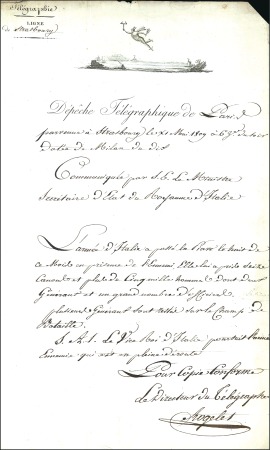 Télégraphie
LIGNE
de Strasbourg
Dépêche Télégraphique de Paris
parvenue à Strasbourg le Mai 1809 à 6
datée de Milan du dix
Communiquée par S. E. Le Ministre
Secrétaire d'Etat du Royaume d'Italie
L'armée d'Italie a passé la Piave le huit de
ce Mois en présence de l'Ennemi. Elle lui a pris seize
Canons et plus de Cinq mille hommes dont deux
Généraux et un grand nombre d'officiers
plusieurs Généraux sont restés sur le Champ de
Bataille.
S. A. I. Le Vice Roi d'Italie poursuit l'armée
Ennemie qui est en pleine déroute
Pour Copie Conforme
Le directeur du Télégraphe